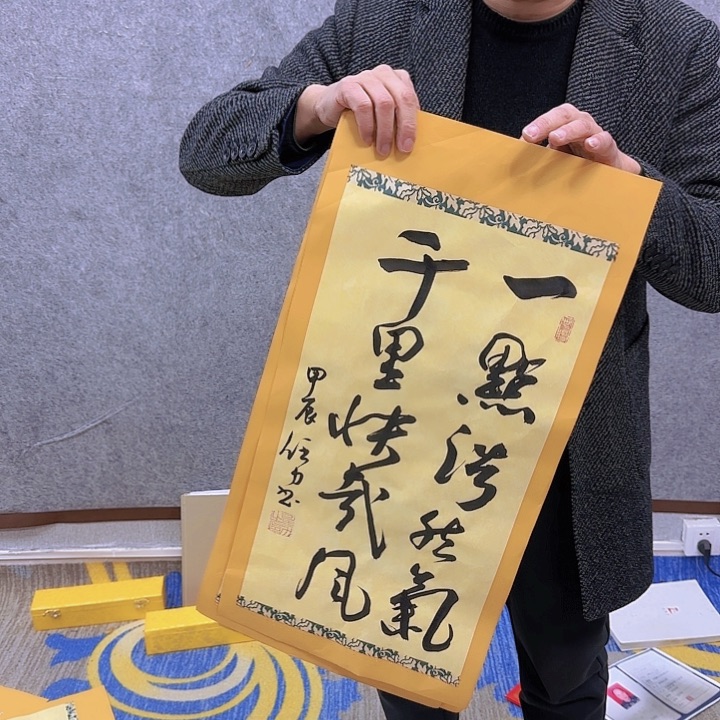 一點浩然氣
千里快哉風
甲辰任力书